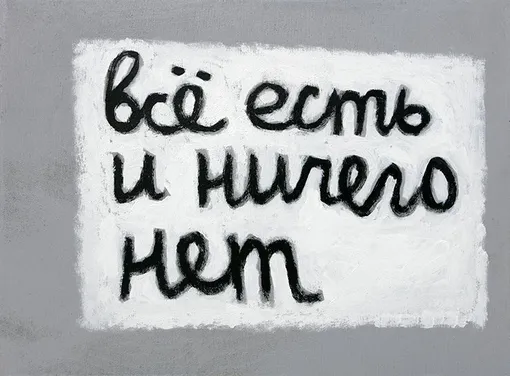 всё есть
и ничего
нет